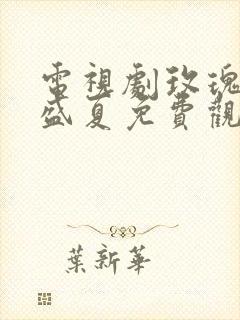 電視劇玫瑰
盛夏免費觀
葉新華